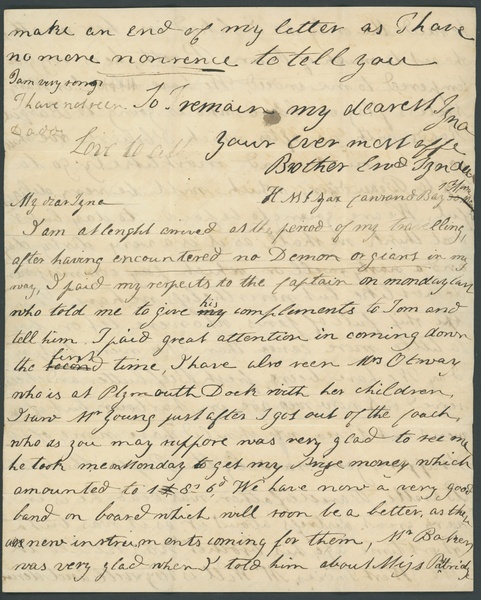 make an end of my letter as I have
no more nonsence to tell you
I am very sorry
I have not seen
So I remain my dearest Tyna
Love to all
your ever most affe
Brother
My dear Tyna
I am at lenght arrived at the period of my travelling,
after having encountered no Demon or giant in my
way, I paid my respects to the Captain on monday last
who told me to give my his compliments to Tom and
tell him, I paid great attention in coming down
the second first time, I have also seen Mrs Otway
who is at Plymouth Dock with her children,
I saw Mr Young just after I got out of the Coach,
who as you may suppose was very glad to see me
he took me Monday to get my Prize money which
amounted to 1 £ 8s 6d We have now a very good
band on board which will soon be a better, as they
new instruments coming for them, Mr Baker
was very glad when I told him about Miss Patridge